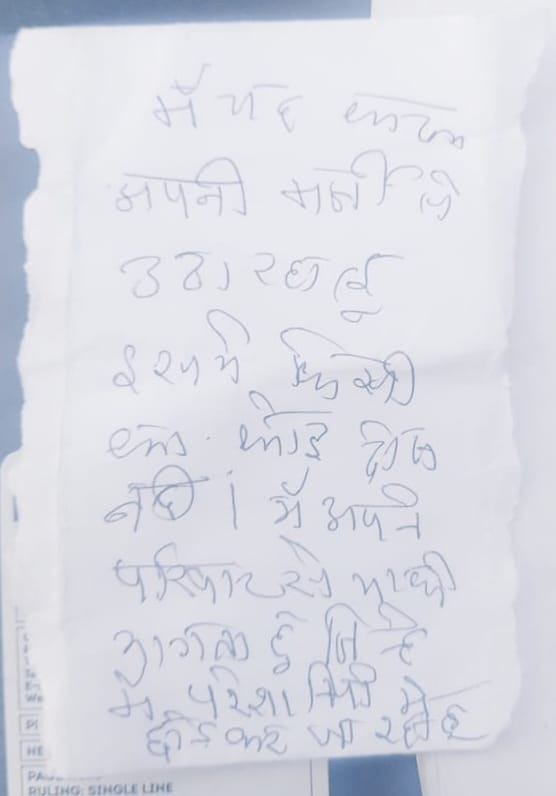 मैं यह कदम
अपनी मर्जी से
उठा रहा हूँ
इसमे किसी
का कोई दोष
नही । मैं अपने
परिवार से माफी
मागता हूँ जिन्हे
मे परेशानियों मे
छोड कर जा रहा हूँ
PI
HE
RULING: SINGLE LINE